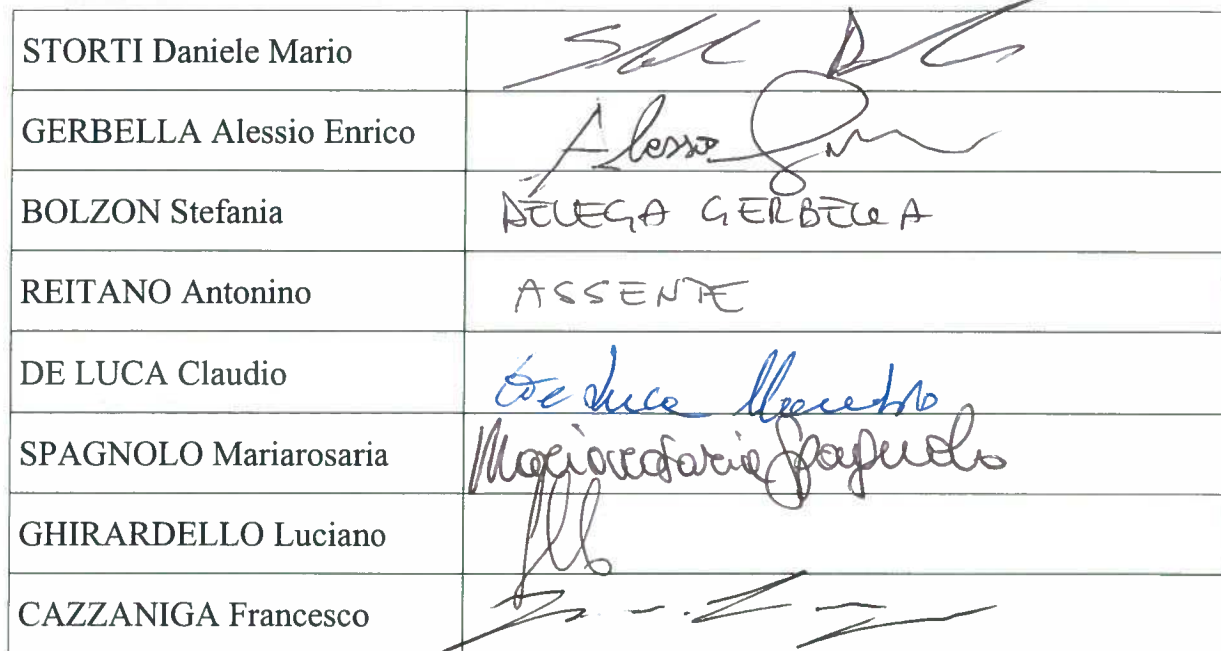 STORTI Daniele Mario
GERBELLA Alessio Enrico Alessio
BOLZON Stefania DELEGA GERBELLA
REITANO Antonino ASSENTE
DE LUCA Claudio De Luca
SPAGNOLO Mariarosaria Mariarosaria Spagnolo
GHIRARDELLO Luciano
CAZZANIGA Francesco